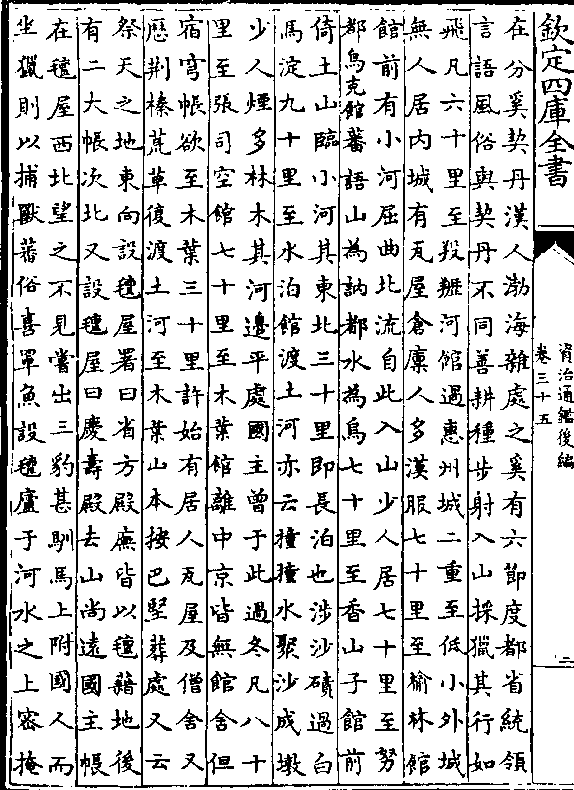 欽定四庫全書
資治通鑑後編
卷三十五
二
在分奚契丹漢人渤海雜處之奚有六節度都省統領
言語風俗與契丹不同善耕種步射入山採獵其行如
飛凡六十里至羖䍽河館過惠州城二重至低小外城
無人居内城有瓦屋倉廩人多漢服七十里至榆林館
館前有小河屈曲北流自此入山少人居七十里至努
都烏克館蕃語山為訥都水為烏七十里至香山子館前
倚土山臨小河其東北三十里即長泊也涉沙磧過白
馬淀九十里至水泊館渡土河亦云撞撞水聚沙成墩
少人煙多林木其河邊平處國主曾于此過冬凡八十
里至張司空館七十里至木葉館離中京皆無館舍但
宿穹帳欲至木葉三十里許始有居人瓦屋及僧舍又
歴荆榛荒草復渡土河至木葉山本按巴堅葬處又云
祭天之地東向設氊屋署曰省方殿廡皆以氊藉地後
有二大帳次北又設氊屋曰慶壽殿去山尚逺國主帳
在氊屋西北望之不見嘗出三豹甚馴馬上附國人而
坐獵則以捕獸蕃俗喜罩魚設氊廬于河水之上密掩